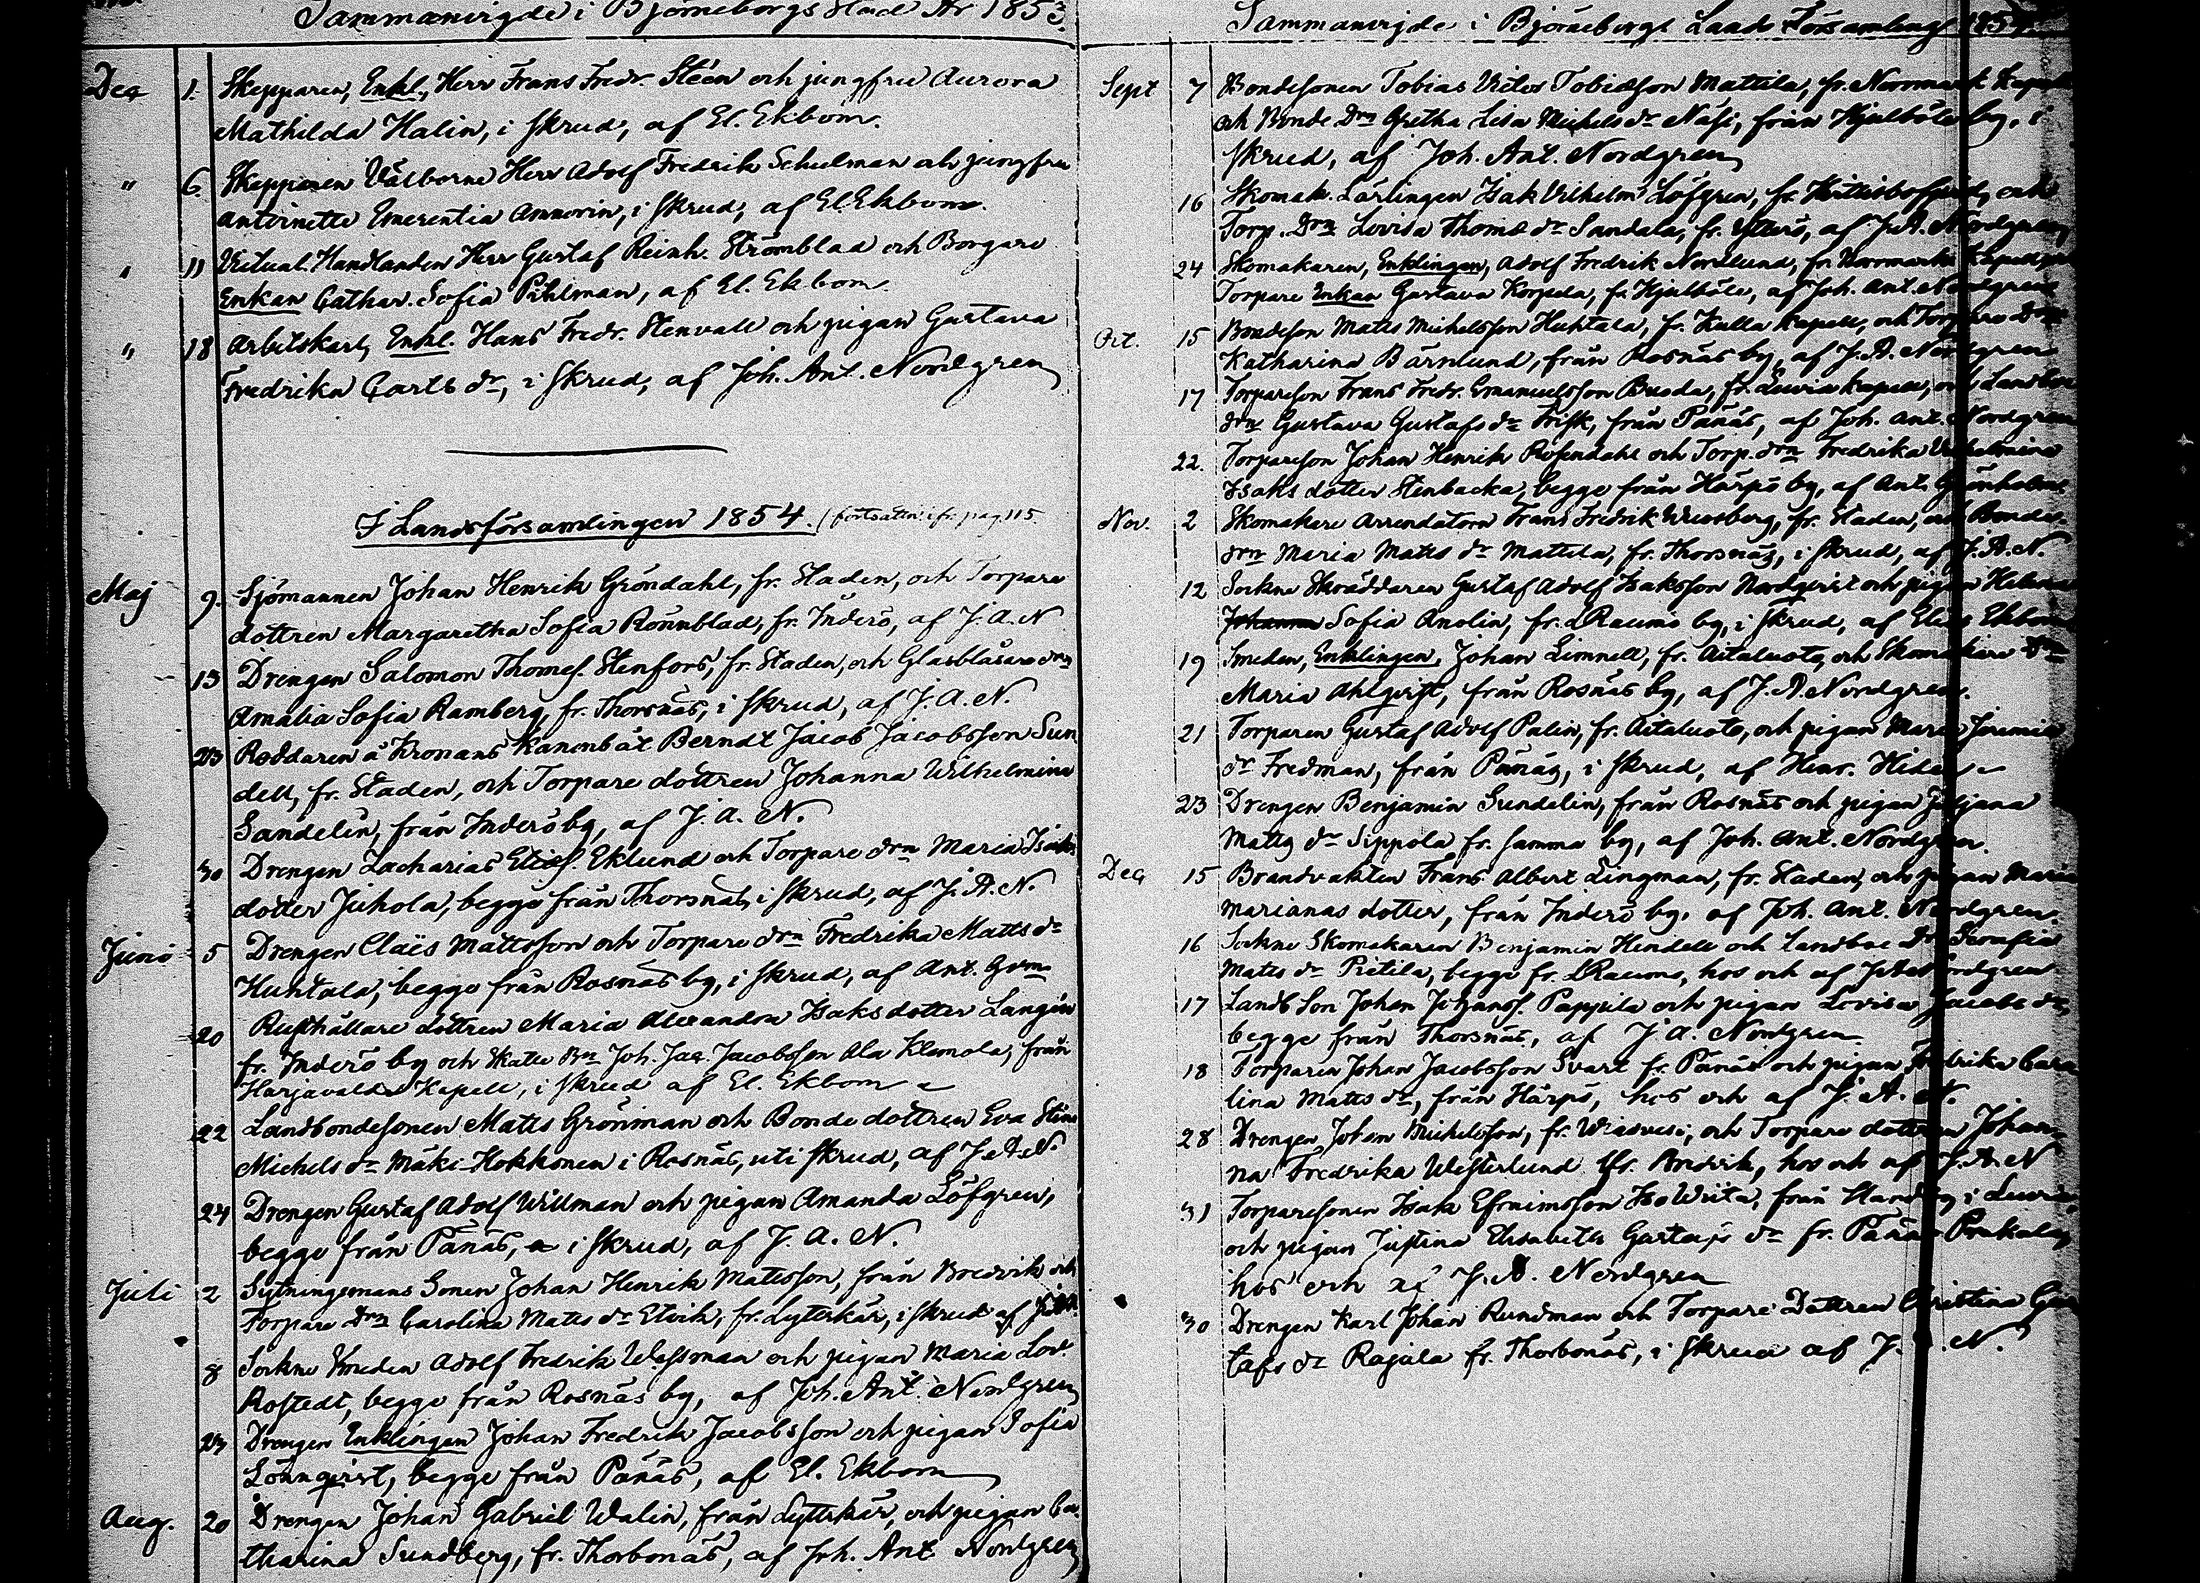 Sammanvigde i Björneborgs Stad År 1853
Dec 1. Skepparen, Enkl., Herr Frans Fredr. Steen och jungfru Aurora
Mathilda Halin, i skrud, af El. Ekbom.
" 6 Skepparen Välborne Herr Adolf Fredrik Schulman och jungfru
Antoinette Emerentia Ammorin, i skrud, af El. Ekbom.
" 11 Victual. Handlanden Herr Gustaf Reinh. Strömblad och Borgare
Enkan Cathar. Sofia Pihlman, af El. Ekbom
" 18 Arbetskarl, Enkl. Hans Fredr. Stenvall och pigan Gustava
Fredrika Carls dr, i skrud, af Joh. Ant. Nordgren
I Landsförsamlingen 1854. (fortsättn. fr. pag. 115.
Maj 9. Sjömannen Johan Henrik Gröndahl, fr. Staden, och Torpare
dottren Margaretha Sofia Rönnblad, fr. Inderö, af J. A. N
13 Drengen Salomon Thomæs. Stenfors, fr. Staden, och Glasblåsare drn
Amalia Sofia Ramberg, fr. Thorsnäs, i skrud, af J. A. N.
23 Roddaren å Kronans Kanonbåt Berndt Jacob Jacobsson Sun
dell, fr. Staden, och Torpare dottren Johanna Wilhelmina
Sandelin, från Inderö by, af J. A. N.
30 Drengen Zacharias Eliæs. Eklund och Torpare drn Maria Isaks
dotter Juhola, begge från Thorsnäs, i skrud, af J. A. N.
Junii 5 Drengen Claës Mattsson och Torpare drn Fredrika Matts dr
Huhtala, begge från Rosnäs by, i skrud, af Ant. Grm
20 Rusthållare dottren Maria Alexandra Isaksdotter Langén
fr. Inderö by och Skatte Bn Joh. Jac. Jacobsson Ala Klemola, från
Harjavalda Kapell, i skrud af El. Ekbom
22 Landbondesonen Matts Grönman och Bonde dottren Eva Stina
Michels dr Mäki-Hokkonen i Rosnäs, uti skrud, af J. A. N.
24 Drengen Gustaf Adolf Willman och pigan Amanda Löfgren,
begge från Pänäs, i skrud, af J. A. N.
Juli 2 Sytningsmans Sonen Johan Henrik Mattsson, från Bredvik och
Torpare Drn Carolina Matts dr Elvik, fr. Lytterkär, i skrud af
8 Sockne Smeden Adolf Fredrik Wessman och pigan Maria Lov.
Rostedt, begge från Rosnäs by, af Joh. Ant. Nordgren
23 Drengen Enklingen Johan Fredrik Jacobsson och pigan Sofia
Lönnqvist, begge från Pänäs, af El. Ekbom
Aug. 20 Drengen Johan Gabriel Walin, från Lytterkär, och pigan Ca
tharina Sundberg, fr. Thorbonäs, af Joh. Ant Nordgren
Sammanvigde i Björneborgs Lands Församling 1854.
Sept 7 Bondesonen Tobias Victor Tobiasson Mattila, fr. Norrmark Kapell
och Bonde Drn Gretha Lisa Michels dr Näsi, från Hjulböle by, i
skrud, af Joh. Ant. Nordgren
16 Skomak. Lärlingen Isak Vilhelm Löfgren, fr.
Torp. Drn Lovisa Thomæ dr Sandala, fr. Ytterö, af J. A. Nordgren
24 Skomakaren, Enklingen, Adolf Fredrik Nordlund, fr. Norrmarks Kapell
Torpare Enkan Gustava Korpela, fr. Hjulböle, af Joh. Ant. Nordgren
Oct. 15 Bondeson Matts Michelsson Huhtala, fr. Kulla Kapell, och Torpare Drn
Katharina Bärnlund, från Rosnäs by, af J. A. Nordgren
17 Torpareson Frans Fredr. Emanuelsson Busda, fr. Luvia Kapell, och Landbo
drn Gustava Gustafs dr Frisk, från Pänäs, af Joh. Ant. Nordgren
22. Torpareson Johan Henrik Rosendahl och Torp. drn Fredrika Vilhelmina
Isaks dotter Stenbacka, begge från Härpö by, af Ant. Grönholm
Nov. 2 Skomakare Arrendatorn Frans Fredrik Wessberg, fr. Staden, och Bonde
drn Maria Matts dr Mattila, fr. Thorsnäs, i skrud, af J. A. N.
12 Sockne Skräddaren Gustaf Adolf Isaksson Nordqvist och pigan Helena
Johanna Sofia Anolin, fr. LRaumo by, i skrud, af Elias Ekbom
19 Smeden, Enklingen, Johan Limnell, fr. Aitaluoto, och Skomakare Drn
Maria Ahlqvist, från Rosnäs by, af J. A. Nordgren.
21 Torparen Gustaf Adolf Palin, fr. Aitaluoto, och pigan Maria Jeremiæ
dr Fredman, från Pänäs, i skrud, af Henr. Hidén
23 Drengen Benjamin Sundelin, från Rosnäs och pigan Juljana
Matts dr Sippola fr. Samma by, af Joh. Ant. Nordgren.
Dec 15 Brandvakten Frans Albert Lingman, fr. Staden, och pigan Maria
Marianas dotter, från Inderö by, af Joh. Ant. Nordgren
16 Sockne Skomakaren Benjamin Hindell och Landboe Dr Serafia
Matts dr Pietila, begge fr. LRaumo, hos och af Nordgren
17 Landb Son Johan Johanss. Pappila och pigan Lovisa Jacobs dr,
begge från Thorsnäs, af J. A. Nordgren
18 Torparen Johan Jacobsson Svart fr. Pänäs och pigan Fredrika Caro
lina Matts dr, från Härpö, hos och af J. A. N.
28 Drengen Johan Michelsson, fr. Wiasvesi, och Torpare dottren Johan-
na Fredrika Westerlund fr. Bredvik, hos och af J. A. N
31 Torparesonen Isak Efraimsson Iso Writa, från by i Luvia
och pigan Justina Elisabeth Gustafs dr fr. Pänäs
hos och af J. A. Nordgren
30 Drengen Karl Johan Rundman och Torpare Dottren Christina Gus
tafs dr Rajala fr. Thorbonäs, i skrud af J. A. N.